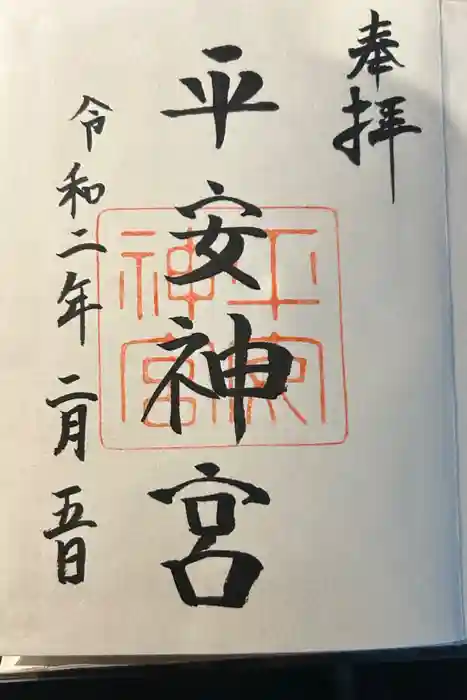 奉拝
平安神宮
平安
神宮
令和二年二月五日